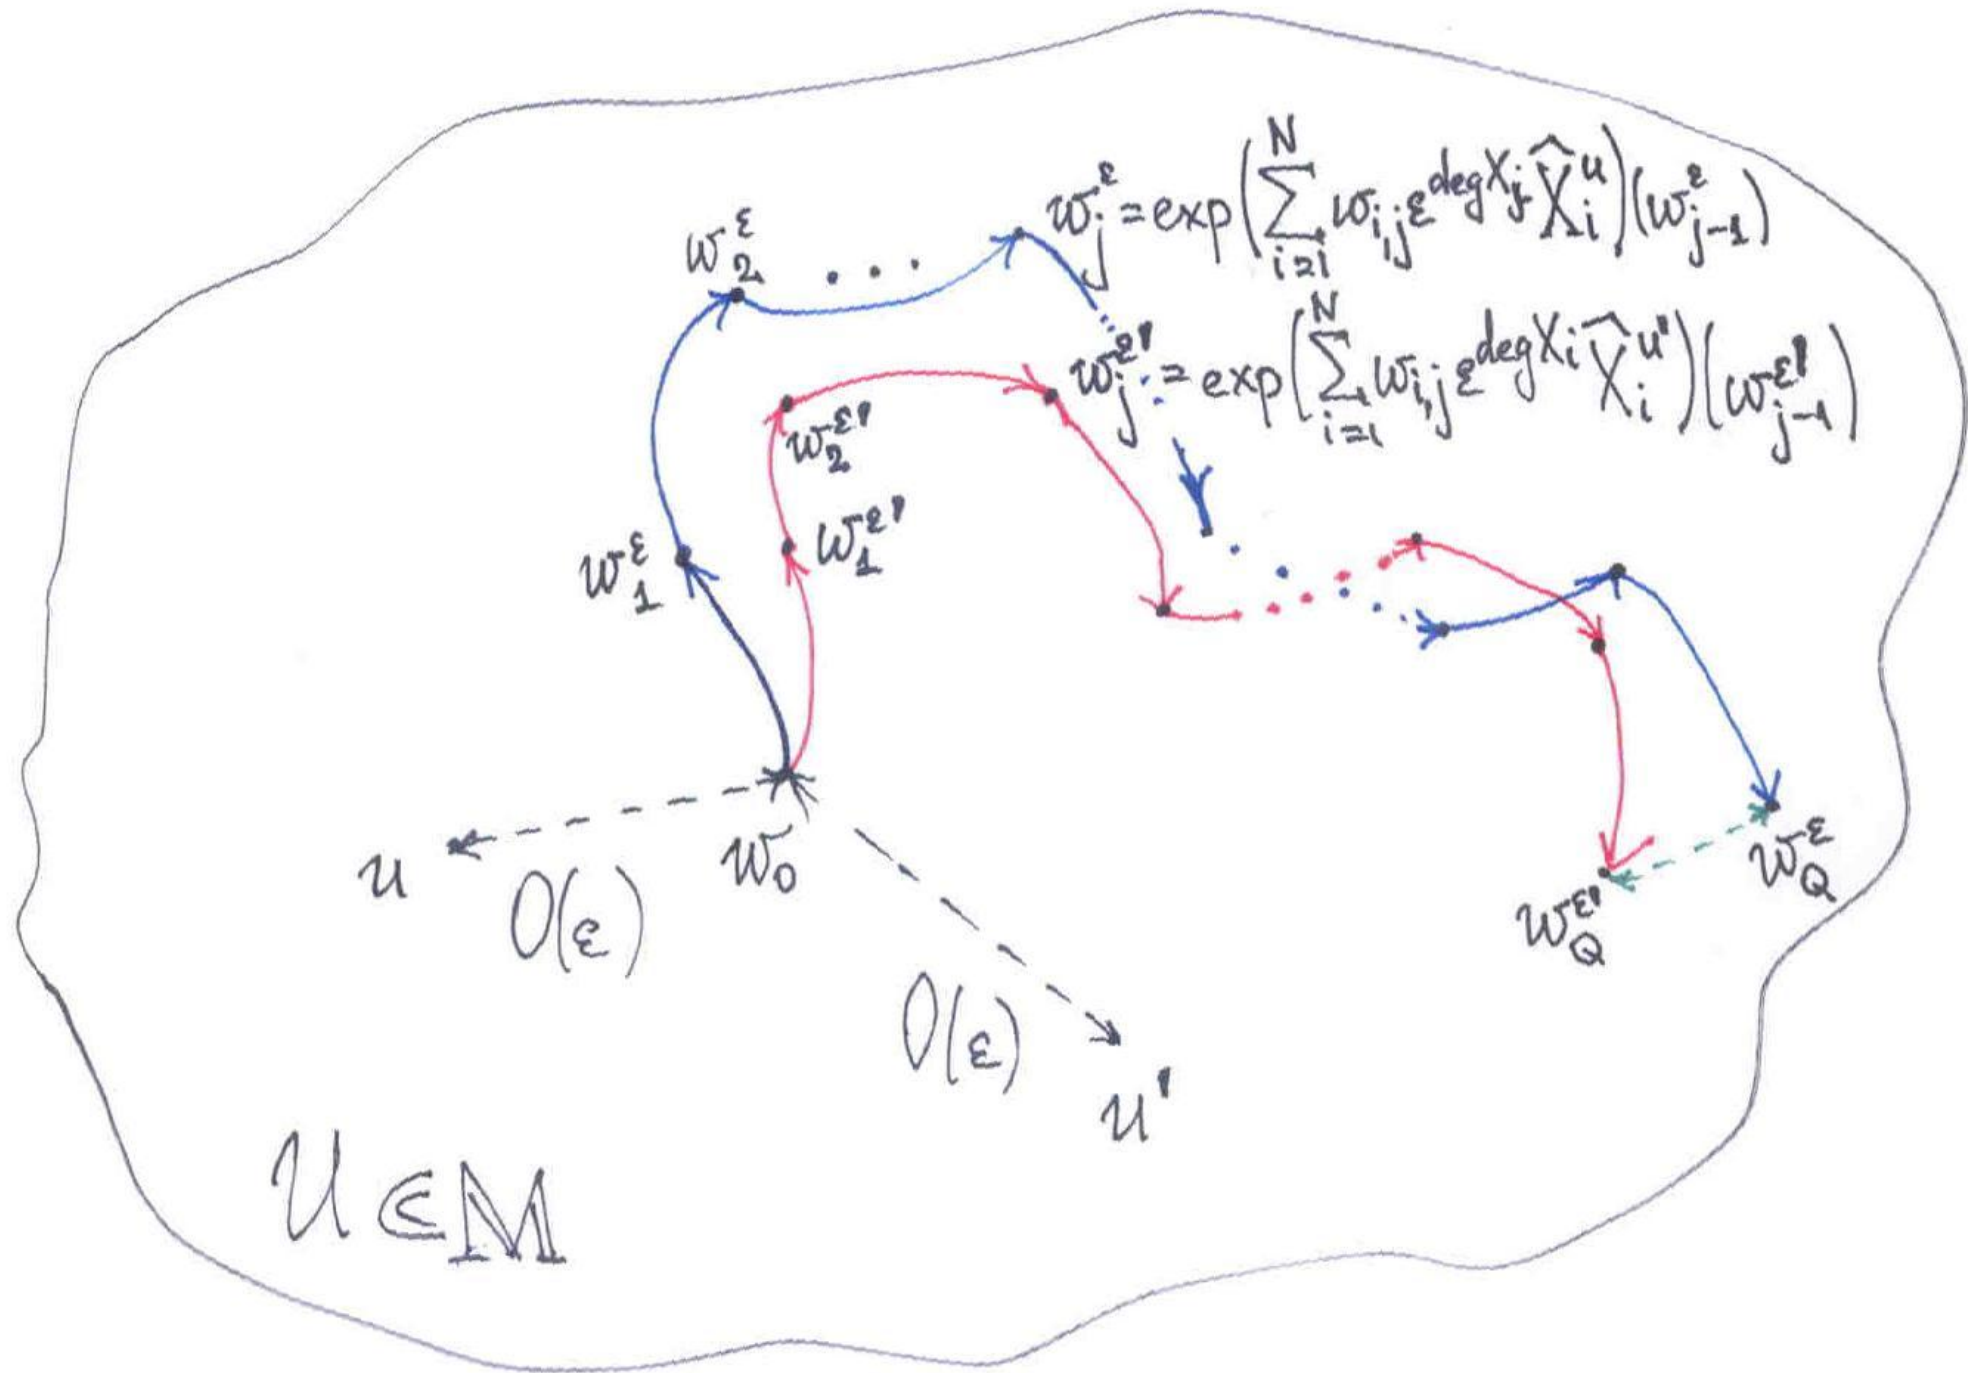 w_j^ε = exp(∑_{i=1}^N w_{i,j} ε^{deg X_j} X̂_i^u)(w_{j-1}^ε)
w_2^ε ...
w_j^{ε'} = exp(∑_{i=1}^N w_{i,j} ε^{deg X_i} X̂_i^{u'})(w_{j-1}^{ε'})
w_2^{ε'}
w_1^ε w_1^{ε'}
u O(ε) w_0 w_Q^{ε'} w_Q^ε
O(ε)
u'
U ⋐ M